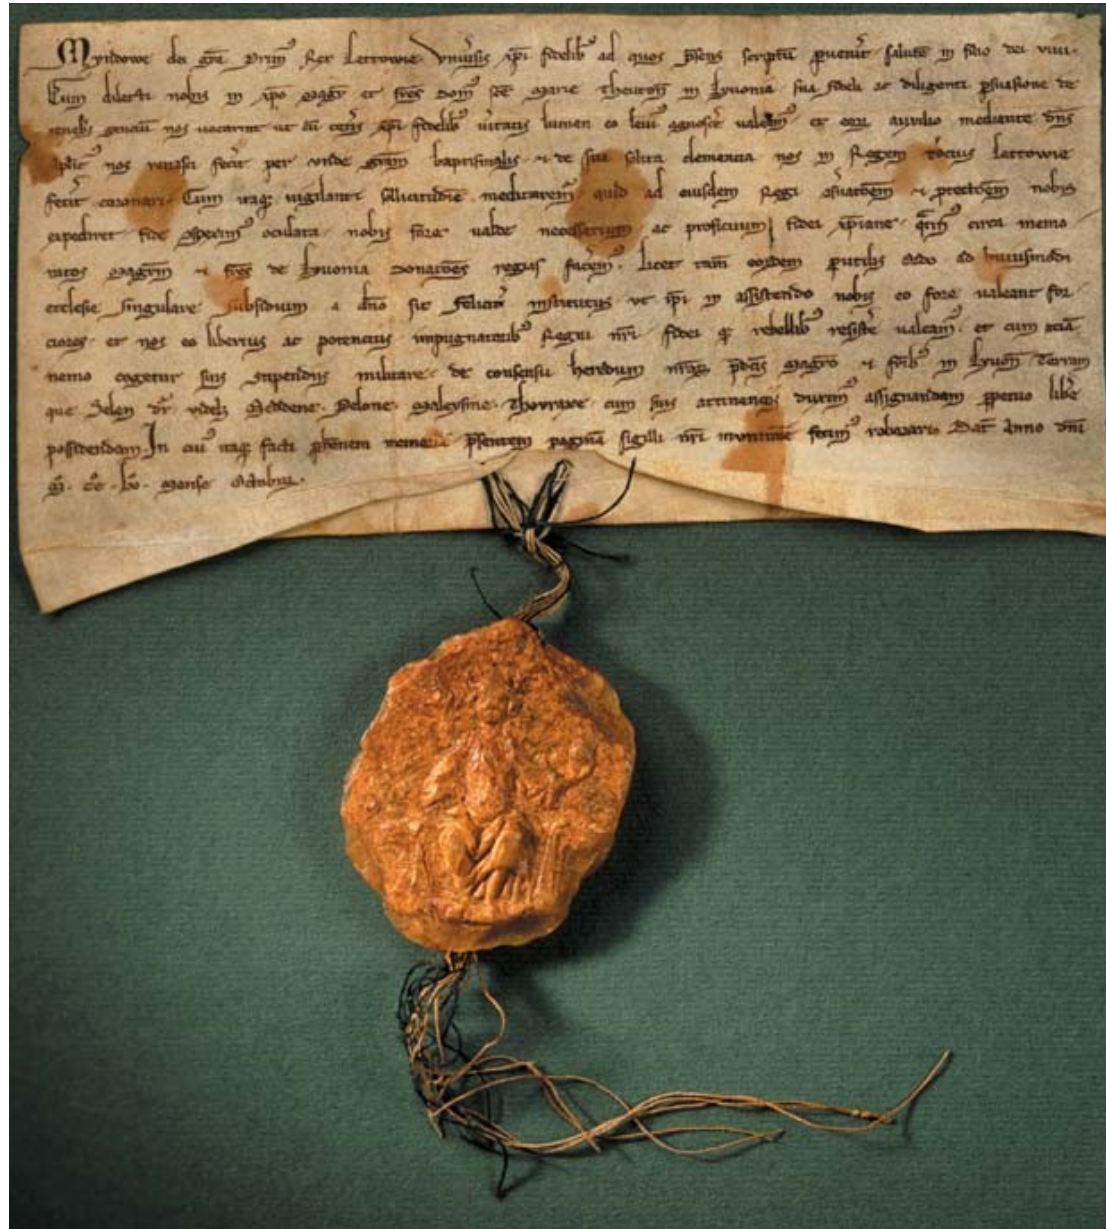 Myndowe dei gra Primus Rex Lettowie. Vniuersis xpi fidelibus ad quos presens scriptum peruenerit salutem in filio dei viui.
Cum dilecti nobis in xpo Magr et fres Dom sce Marie Theuton in Lyuonia sua fideli ac diligenti persuasione de
tenebris gencium nos vocarint ut cu ceteris xpi fidelibus veritatis lumen eo leuius agnoscere valeam et eoru auxilio mediante dns
nos renasci fecit per vnde gram baptismalis et de sua solita clemencia nos in Regem tocius Lettowie
fecit coronari. Cum itaque vigilanti sollicitudine meditaremur quid ad eiusdem Regni et nobis
expediret fide oculata nobis fore valde necessarium ac proficuum fidei xpiane circa memo
ratos Magrm et fres de Lyuonia donacoes regias facem. licet tam eisdem ad huiusmodi
ecclesie singulare subsidium a dno sit feliciter institutus ut ipi in assistendo nobis eo fore valeant for
ciores. et nos eo liberius ac potencius impugnatoribus Regni nri fidei que rebellibus resistere valeam. et cum eciam
nemo cogetur suis stipendiis militare. de consensu heredum nrorum pdcis Magro et fribus in Lyuon Terram
que Selen dr. videlz Meddene. Pelone. Maleysine. Thovraxe. cum suis attinenciis duximus assignandam perpetuo libere
possidendam. In cuius itaque facti perhennem memoria presentem pagina sigilli nri munimine fecimus roborari. Dat Anno dni
M. CC. LV. Mense Octobri.